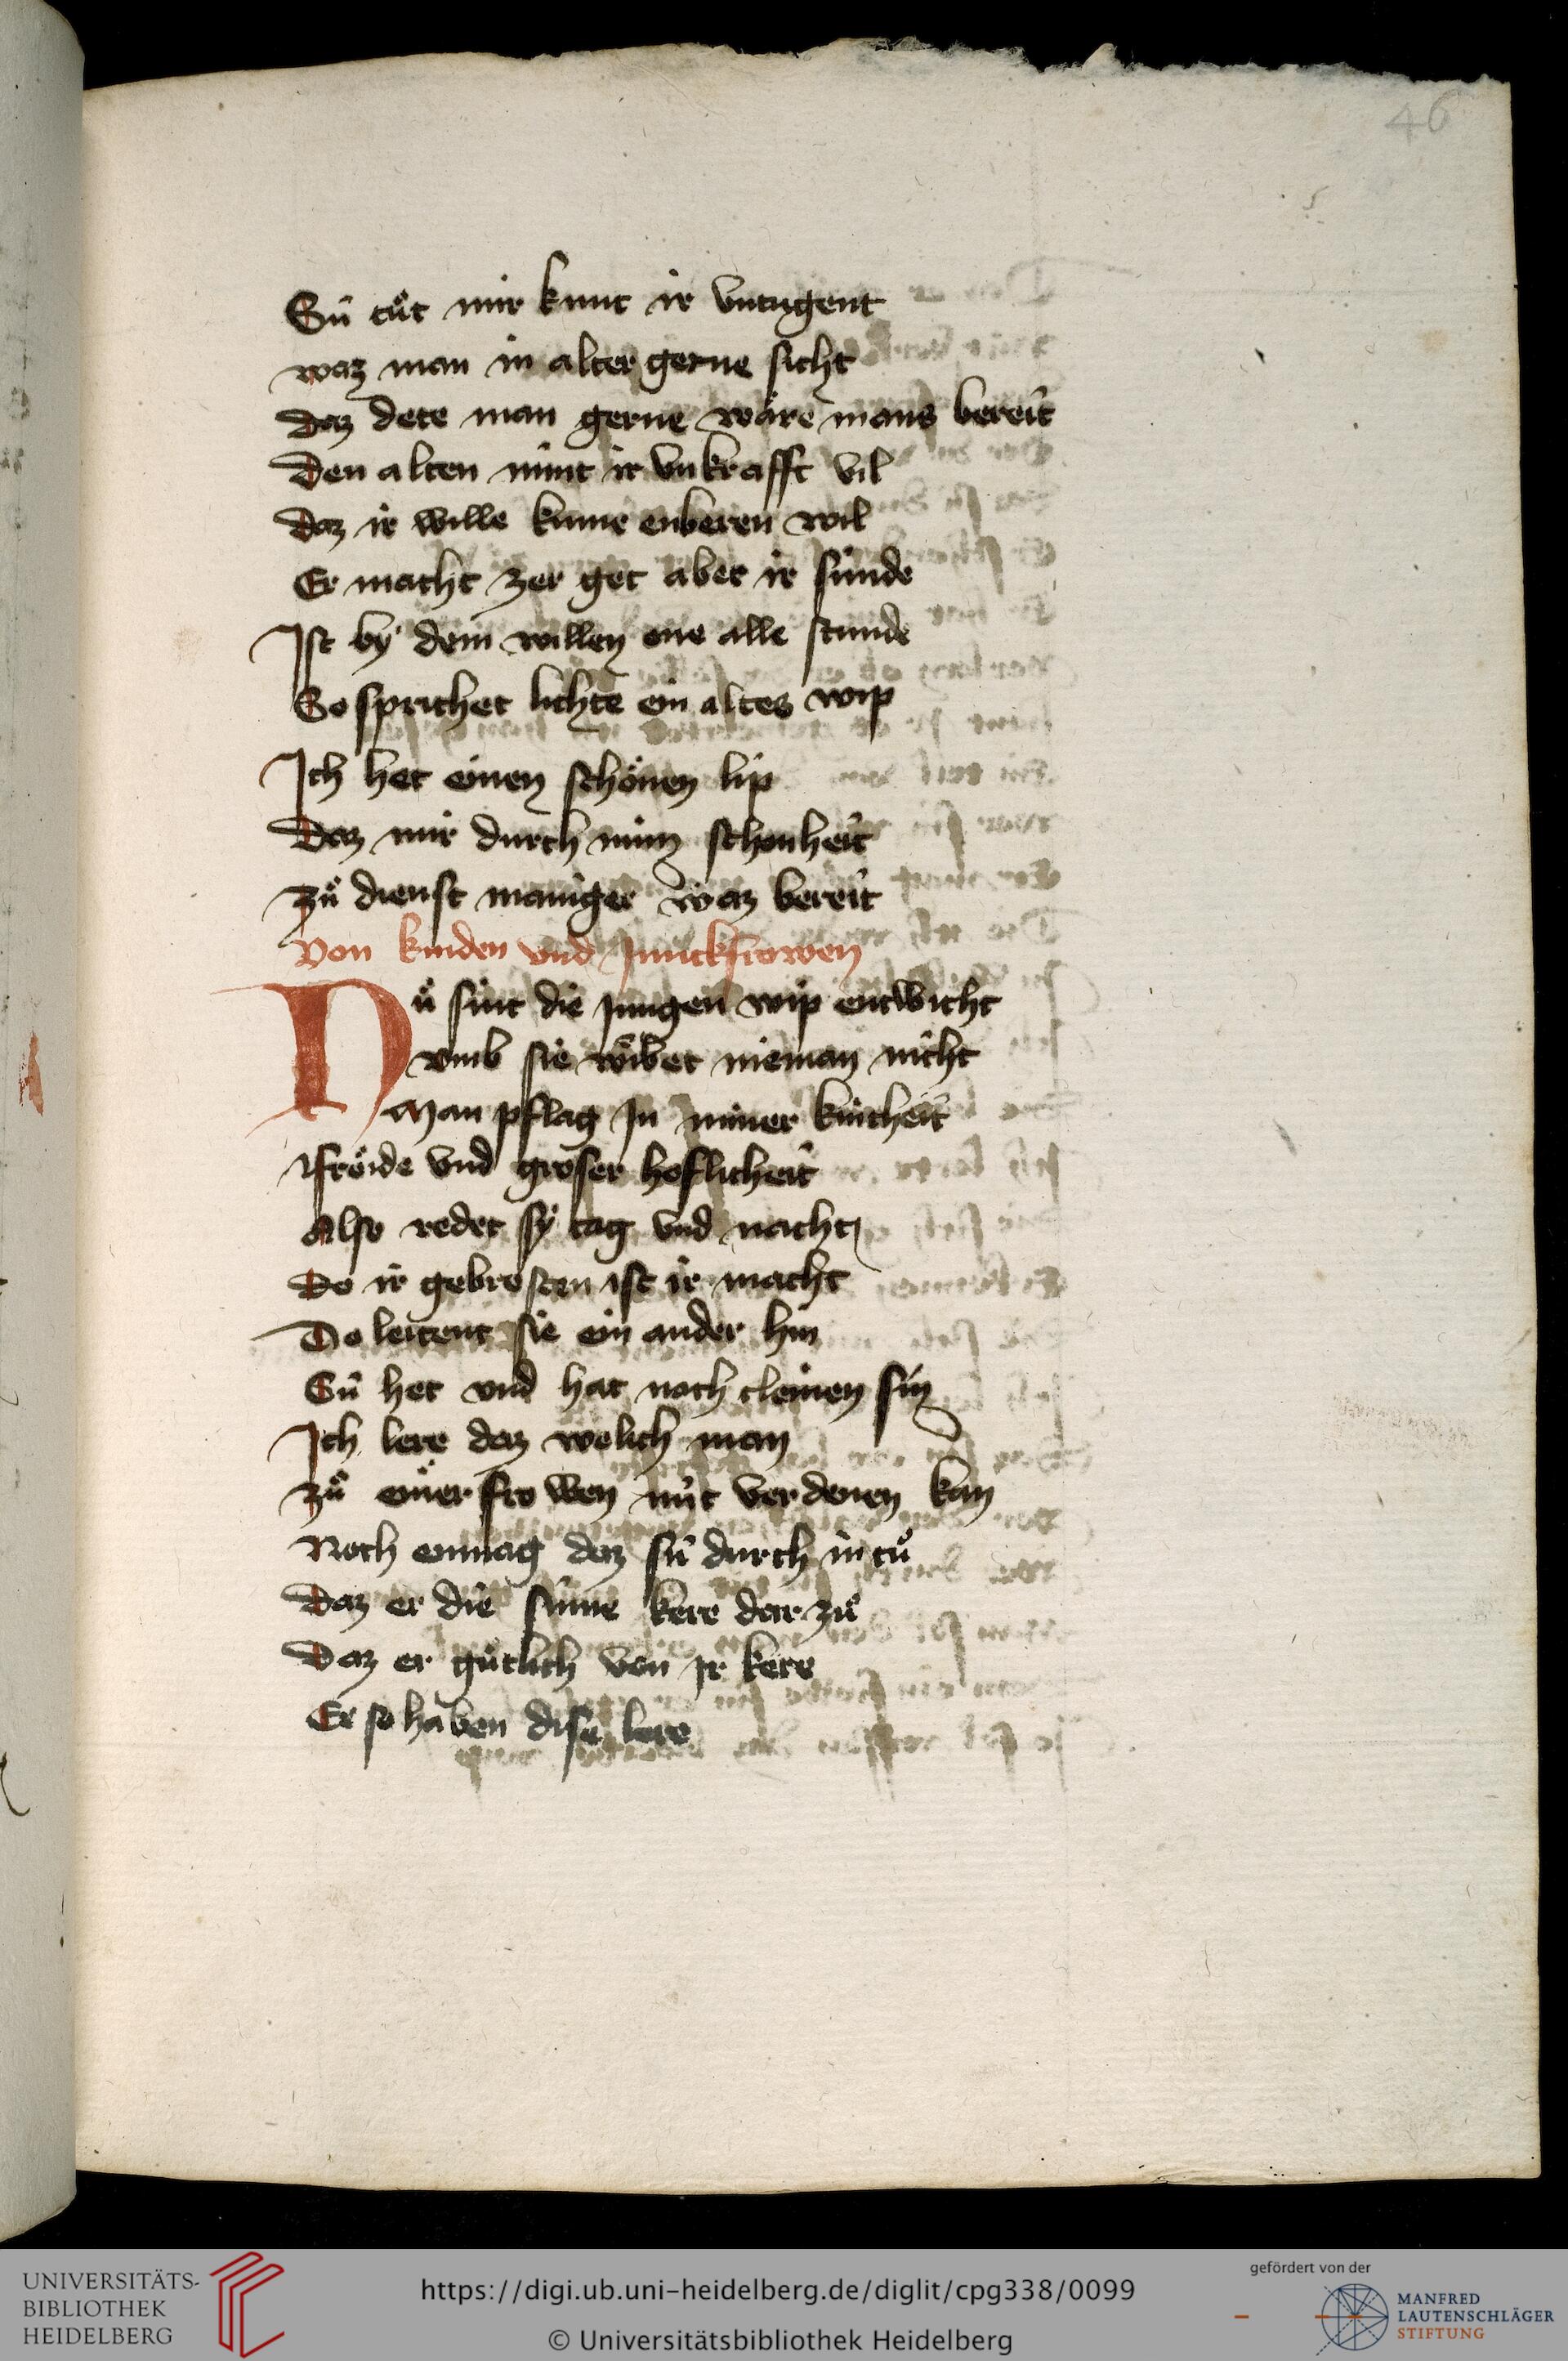 46
Sü tuͦt mir kunt ir vntugent
waz man in alter gerne sicht
daz dete man gerne wäre mans bereit
den alten nimt ir vnkrafft vil
daz ir wille kume enberen wil
Er macht zer get aber ir sünde
Ist by dem willen ene alle stunde
So sprichet lichte ein altes wip
Ich het einen schönen lip
Daz mir durch min schonheit
zuͦ dienst maniger waz bereit
Von kinden vnd Junckfrowen
Nuͦ sint die jungen wip entwicht
vmb sie wibet nieman nicht
Man pflag In miner kintheit
fröide vnd groser hoflicheit
Also redet sy tag vnd nacht
Do ir gebrosten ist ir macht
Do leitent sie ein ander hin
Sü het vnd hat noch cleinen sin
Ich lere daz welich man
zuͦ einer frowen nüt verdenen kan
Noch enmag daz sü durch in tuͦ
Daz er die sinne kere dar zuͦ
Daz er gütlich von Ir kere
Er so haben dise lere
UNIVERSITÄTS-
BIBLIOTHEK
HEIDELBERG
https://digi.ub.uni-heidelberg.de/diglit/cpg338/0099
© Universitätsbibliothek Heidelberg
gefördert von der
MANFRED
LAUTENSCHLÄGER
STIFTUNG